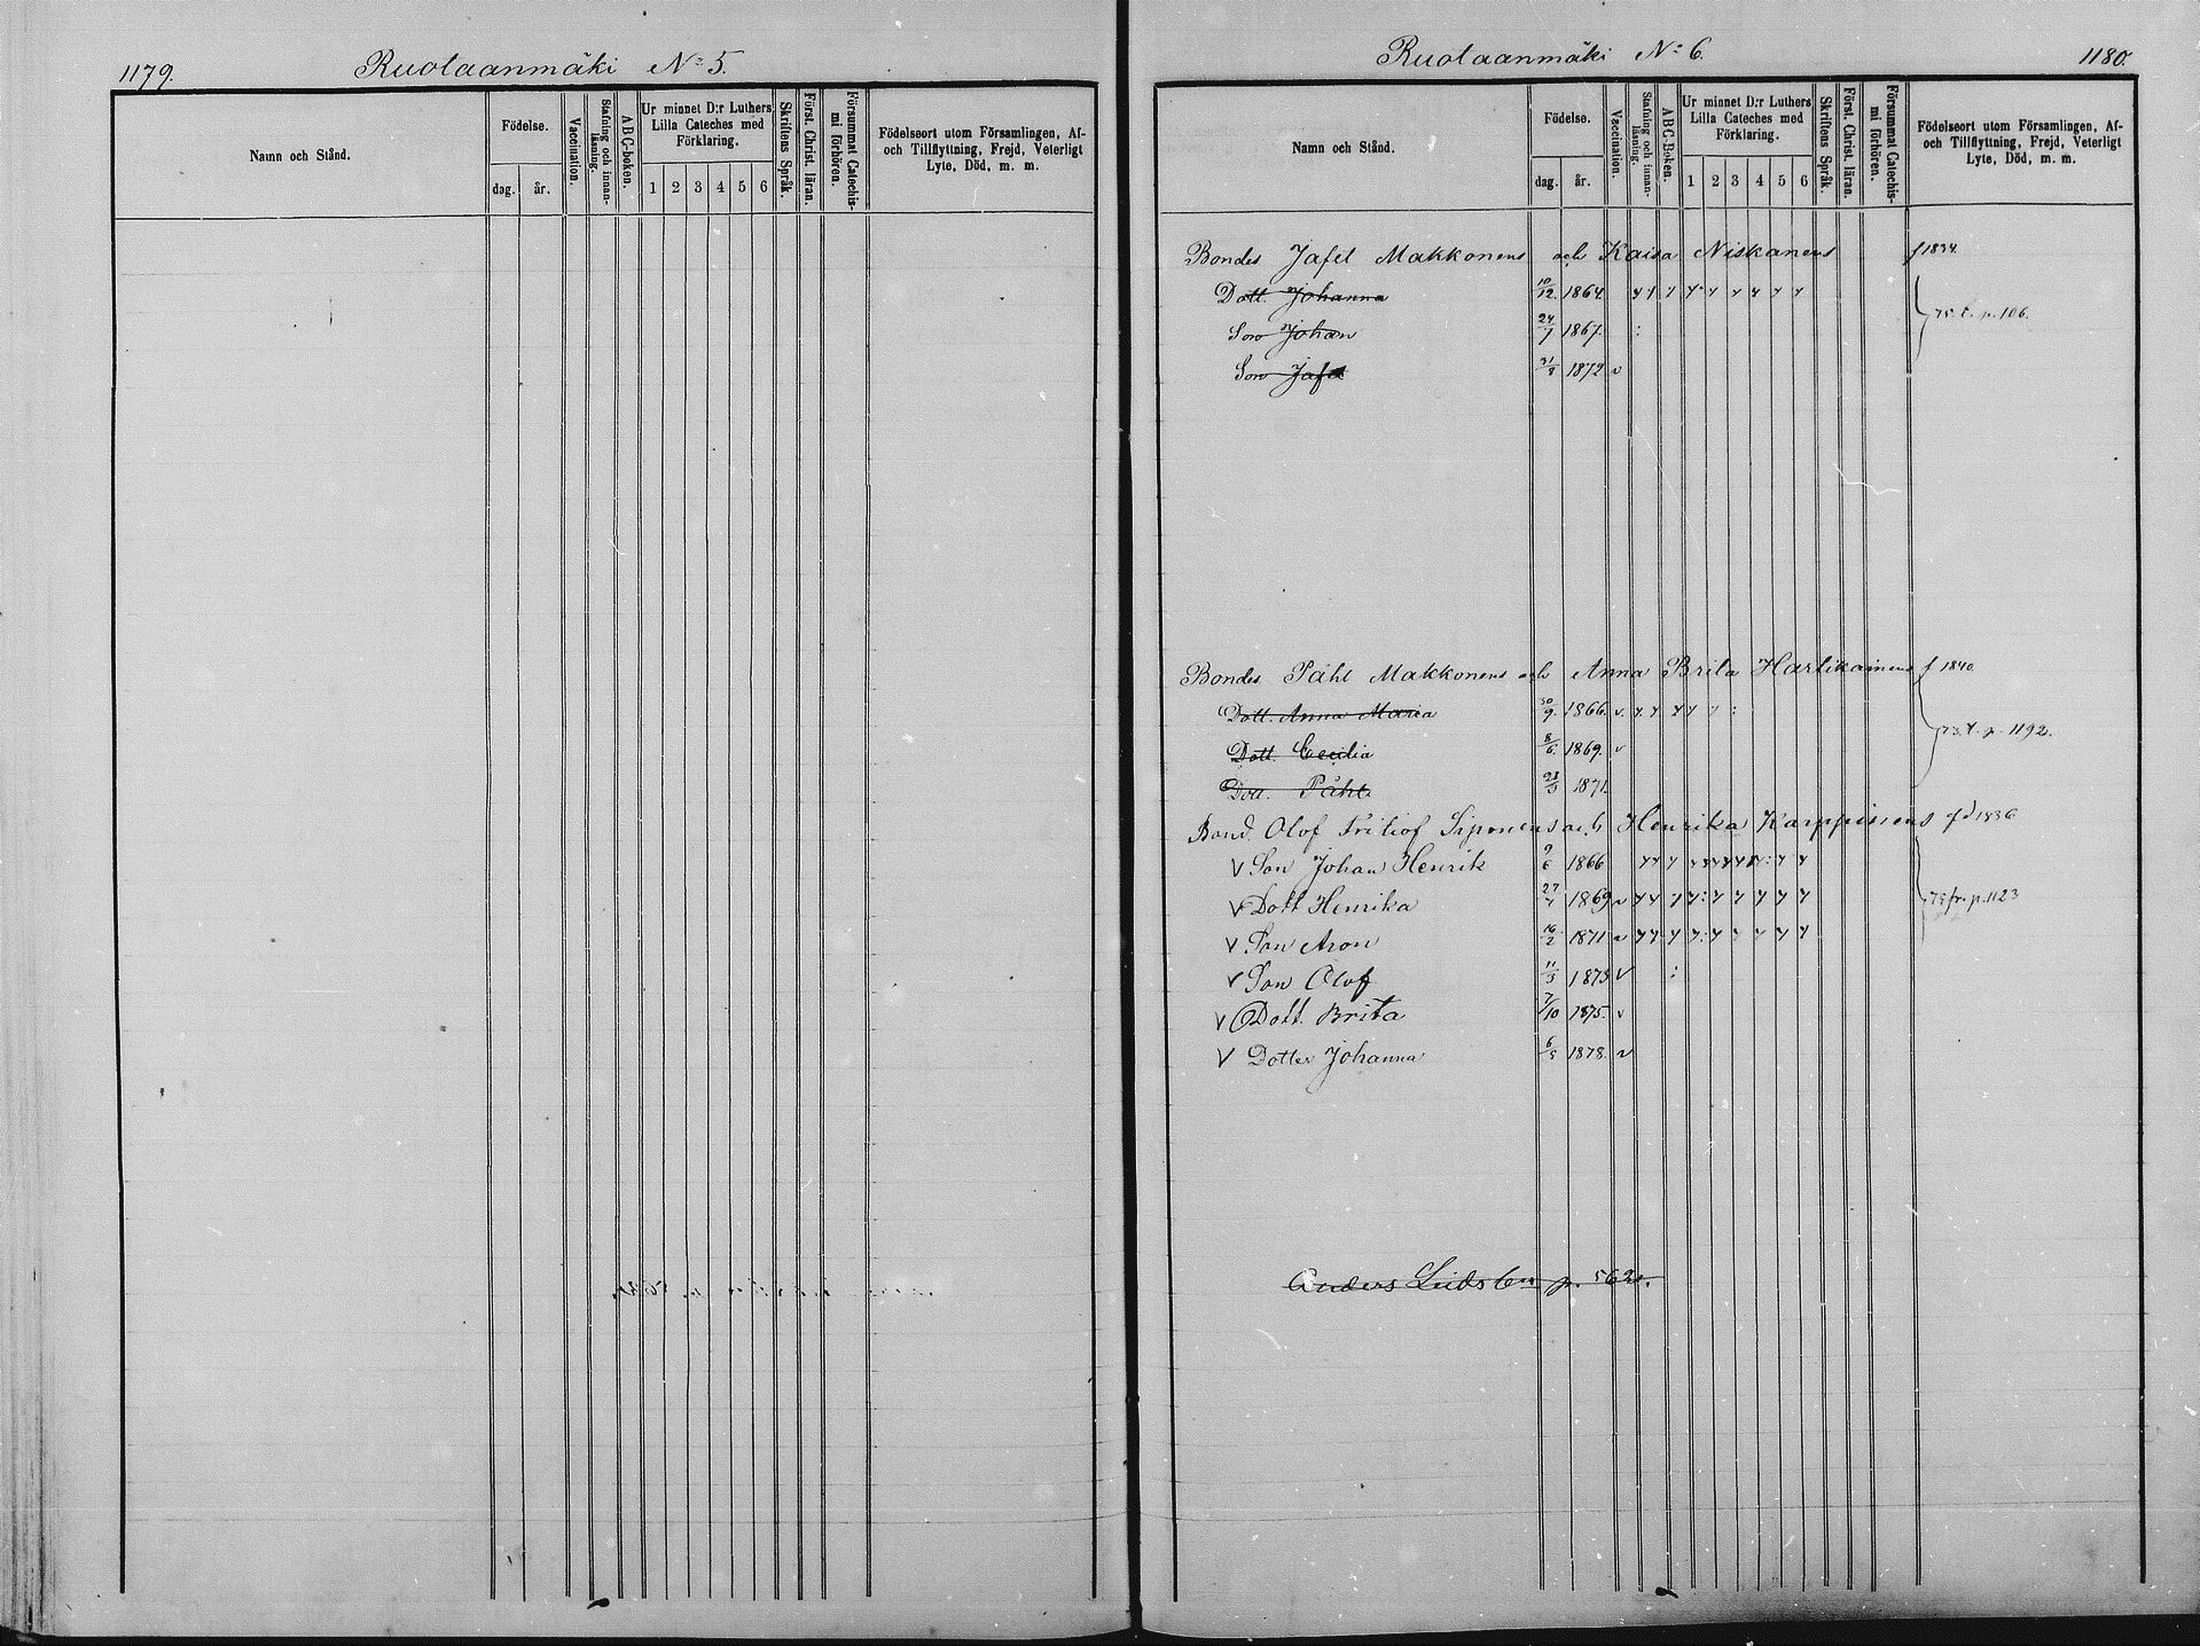 1179.
Ruotaanmäki No 5.
Namn och Stånd.
Födelse.
dag.
år.
Vaccination.
Stafning och innanläsning.
ABC-boken.
Ur minnet D:r Luthers
Lilla Cateches med
Förklaring.
1 2 3 4 5 6
Skriftens Språk.
Först. Christ. läran.
Försummat Catechismi förhören.
Födelseort utom Församlingen, Af-
och Tillflyttning, Frejd, Veterligt
Lyte, Död, m. m.
Ruotaanmäki No 6.
1180.
Namn och Stånd.
Födelse.
dag.
år.
Vaccination.
Stafning och innanläsning.
ABC-Boken.
Ur minnet D:r Luthers
Lilla Cateches med
Förklaring.
1 2 3 4 5 6
Skriftens Språk.
Först. Christ. läran.
Försummat Catechismi förhören.
Födelseort utom Församlingen, Af-
och Tillflyttning, Frejd, Veterligt
Lyte, Död, m. m.
Bondes Jafet Makkonens och Kaisa Niskanens f 1834.
Dott. Johanna 10/12. 1864.
Son Johan 24/7 1867. 75. t. p. 106.
Son Jafet 31/8 1872 v
Bondes Påhl Makkonens och Anna Brita Hartikainens f 1840
Dott. Anna Maria 30/9. 1866. v.
Dott. Cecilia 8/6. 1869. v 73. t. p. 1192.
Dott. Påhl 23/3 1871.
Bond. Olof Fritiof Siponens och Henrika Karppinens fd 1836
V Son Johan Henrik 9/6 1866
V Dott Henrika 27/7 1869 v 75 fr. p. 1123
V Son Aron 16/2 1871 v
V Son Olof 11/3 1873 V
V Dott. Brita 7/10 1875. v
V Dotter Johanna 6/5 1878. v
Anders p. 562.